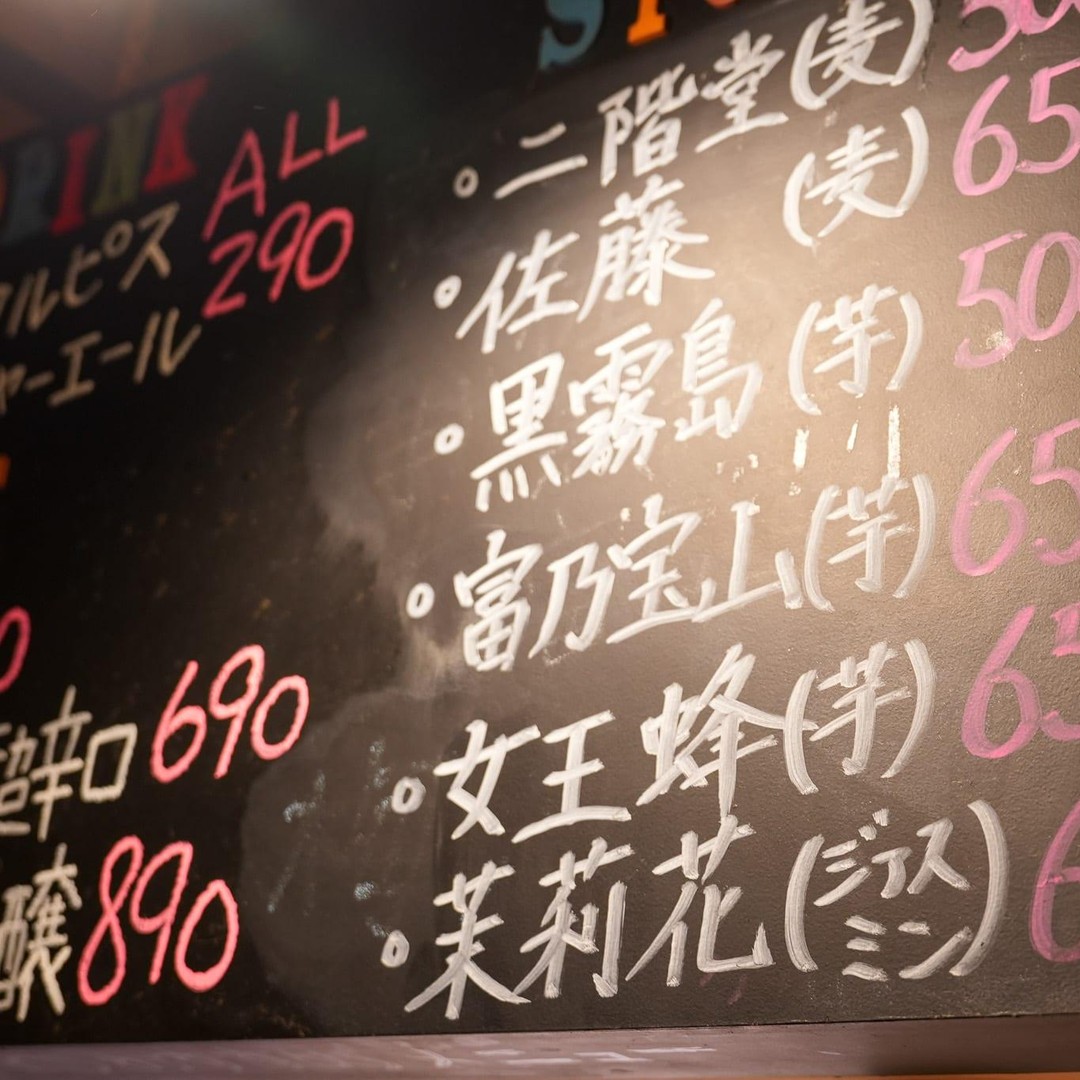 DRINK
ALL
ルピス 290
ャーエール
超辛口 690
醸 890
S
◦二階堂(麦) 50
◦佐藤 (麦) 65
◦黒霧島(芋) 50
◦富乃宝山(芋) 65
◦女王蜂(芋) 65
◦茉莉花(ジャスミン) 6